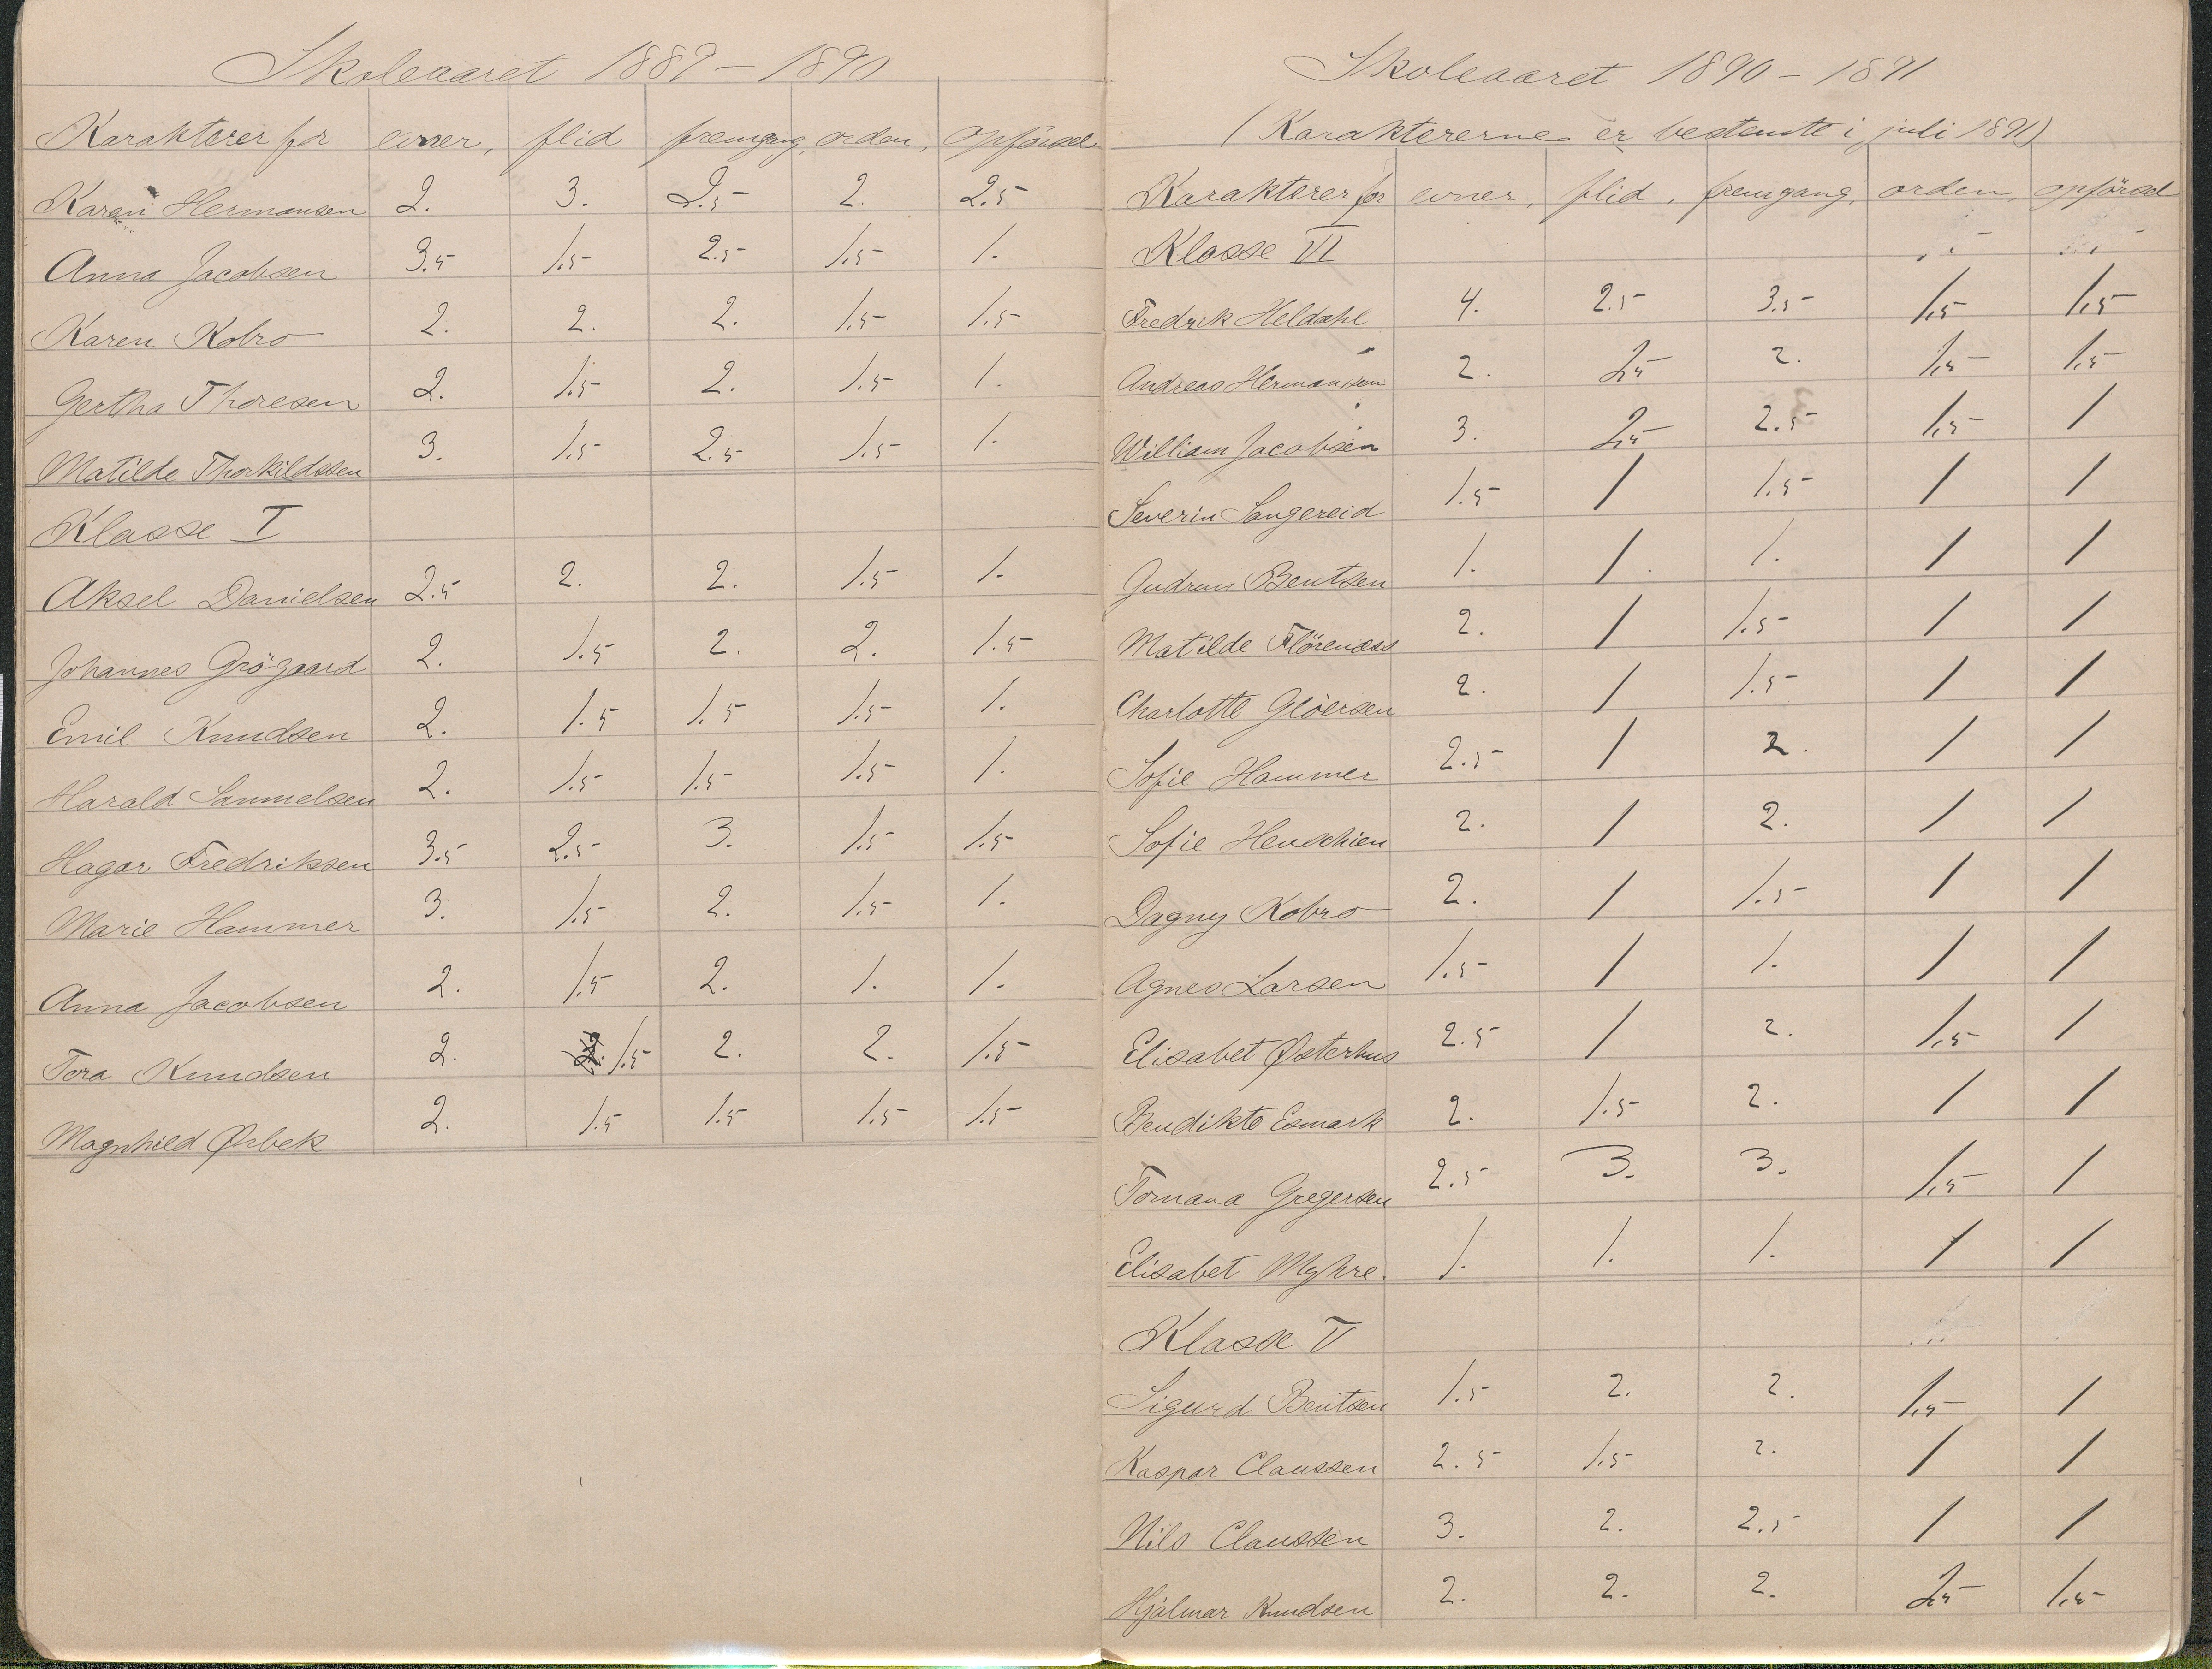 Skoleaaret 1889 – 1890
Karakterer for evner, flid fremgang, orden, opförsel
Karen Hermansen 2. 3. 2.5 2. 2.5
Anna Jacobsen 3.5 1.5 2.5 1.5 1.
Karen Kobro 2. 2. 2. 1.5 1.5
Gertha Thoresen 2. 1.5 2. 1.5 1.
Matilde Thorkildssen 3. 1.5 2.5 1.5 1.
Klasse I
Aksel Danielsen 2.5 2. 2. 1.5 1.
Johannes Grögaard 2. 1.5 2. 2. 1.5
Emil Knudsen 2. 1.5 1.5 1.5 1.
Harald Sammelsen 2. 1.5 1.5 1.5 1.
Hagar Fredriksen 3.5 2.5 3. 1.5 1.5
Marie Hammer 3. 1.5 2. 1.5 1.
Anna Jacobsen 2. 1.5 2. 1. 1.
Tora Knudsen 2. 1.5 2. 2. 1.5
Magnhild Ørbek 2. 1.5 1.5 1.5 1.5
Skoleaaret 1890 – 1891
(Karaktererne er bestemte i juli 1891)
Karakterer for evner, flid, fremgang, orden, opförsel
Klasse VI
Fredrik Heldahl 4. 2.5 3.5 1,5 1,5
Andreas Hermansen 2. 2,5 2. 1,5 1,5
William Jacobsen 3. 2,5 2.5 1,5 1
Severin Songereid 1.5 1 1.5 1 1
Gudrun Bentsen 1. 1. 1. 1 1
Matilde Flörenæss 2. 1 1.5 1 1
Charlotte Glöersen 2. 1 1.5 1 1
Sofie Hammer 2.5 1 2. 1 1
Sofie Henschien 2. 1 2. 1 1
Dagny Kobro 2. 1 1.5 1 1
Agnes Larsen 1.5 1 1. 1 1
Elisabet Østerhus 2.5 1 2. 1,5 1
Bendikte Esmark 2. 1.5 2. 1 1
Tomana Gregersen 2.5 3. 3. 1,5 1
Elisabet Myhre. 1. 1. 1. 1 1
Klasse V
Sigurd Bentsen 1.5 2. 2. 1,5 1
Kaspar Claussen 2.5 1.5 2. 1 1
Nils Claussen 3. 2. 2.5 1 1
Hjalmar Knudsen 2. 2. 2. 2,5 1,5